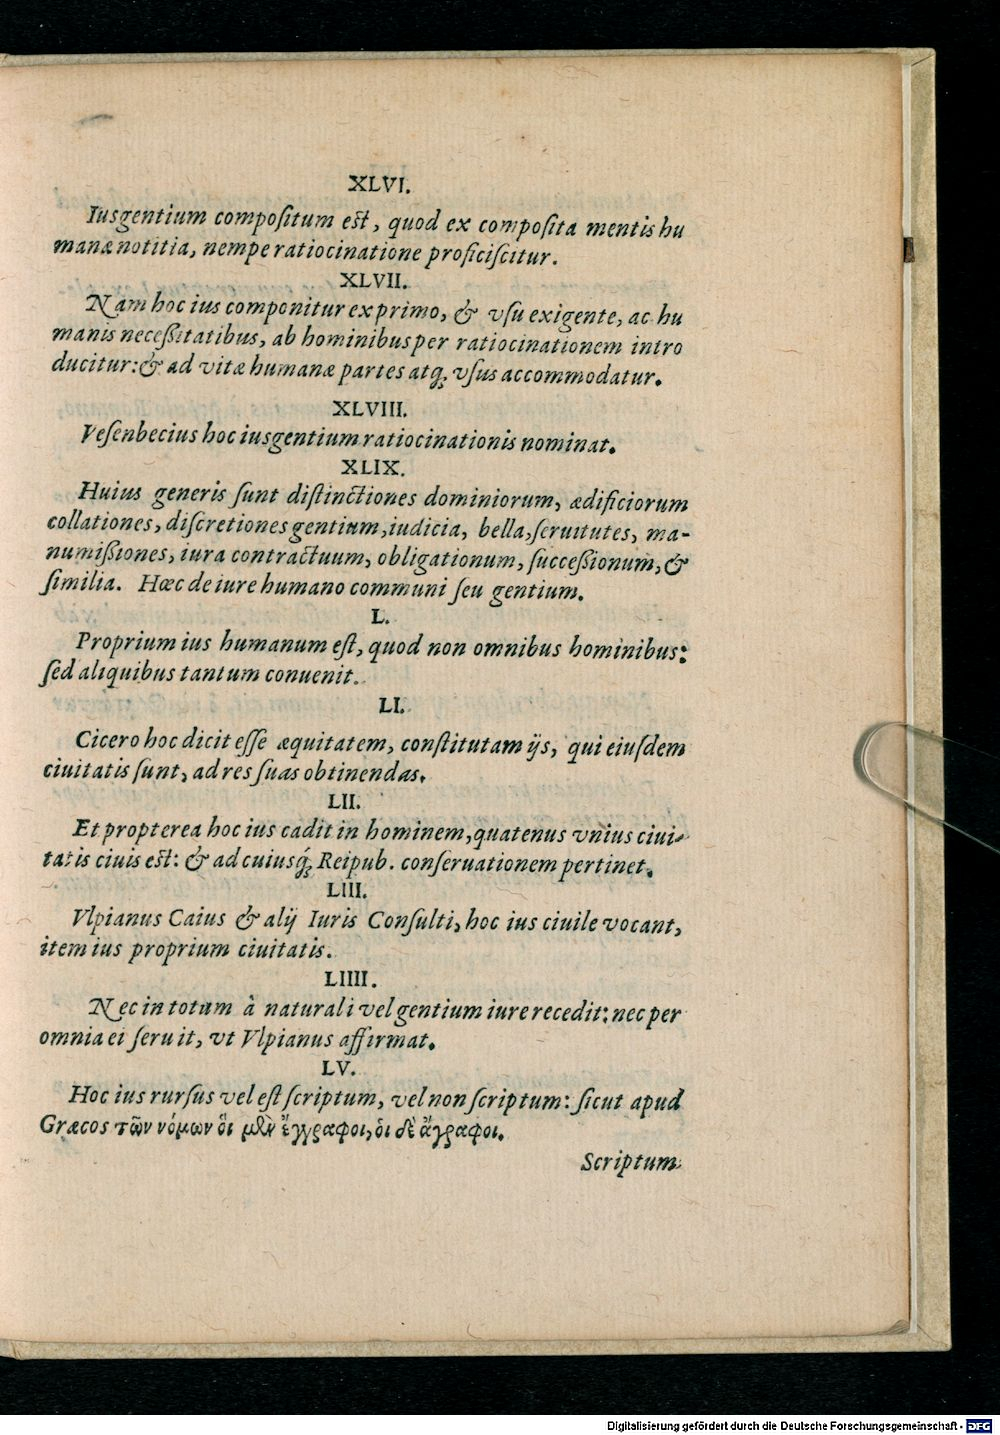 XLVI.
Iusgentium compoſitum eſt, quod ex compoſita mentis hu
manæ notitia, nempe ratiocinatione proficiſcitur.
XLVII.
Nam hoc ius componitur ex primo, & vſu exigente, ac hu
manis neceßitatibus, ab hominibus per ratiocinationem intro
ducitur: & ad vitæ humanæ partes atq; vſus accommodatur.
XLVIII.
Veſenbecius hoc iusgentium ratiocinationis nominat.
XLIX.
Huius generis ſunt diſtinctiones dominiorum, ædificiorum
collationes, diſcretiones gentium, iudicia, bella, ſeruitutes, ma-
numißiones, iura contractuum, obligationum, ſucceßionum, &
ſimilia. Hæc de iure humano communi ſeu gentium.
L.
Proprium ius humanum eſt, quod non omnibus hominibus:
ſed aliquibus tantum conuenit.
LI.
Cicero hoc dicit eſſe æquitatem, conſtitutam ijs, qui eiuſdem
ciuitatis ſunt, ad res ſuas obtinendas.
LII.
Et propterea hoc ius cadit in hominem, quatenus vnius ciui-
tatis ciuis eſt: & ad cuiusq́; Reipub. conſeruationem pertinet.
LIII.
Vlpianus Caius & alij Iuris Conſulti, hoc ius ciuile vocant,
item ius proprium ciuitatis.
LIIII.
Nec in totum à naturali vel gentium iure recedit: nec per
omnia ei ſeruit, vt Vlpianus affirmat.
LV.
Hoc ius rurſus vel eſt ſcriptum, vel non ſcriptum: ſicut apud
Græcos τῶν νόμων ὅι μὲν ἔγγραφοι, ὁι δὲ ἄγραφοι.
Scriptum
Digitalisierung gefördert durch die Deutsche Forschungsgemeinschaft - DFG